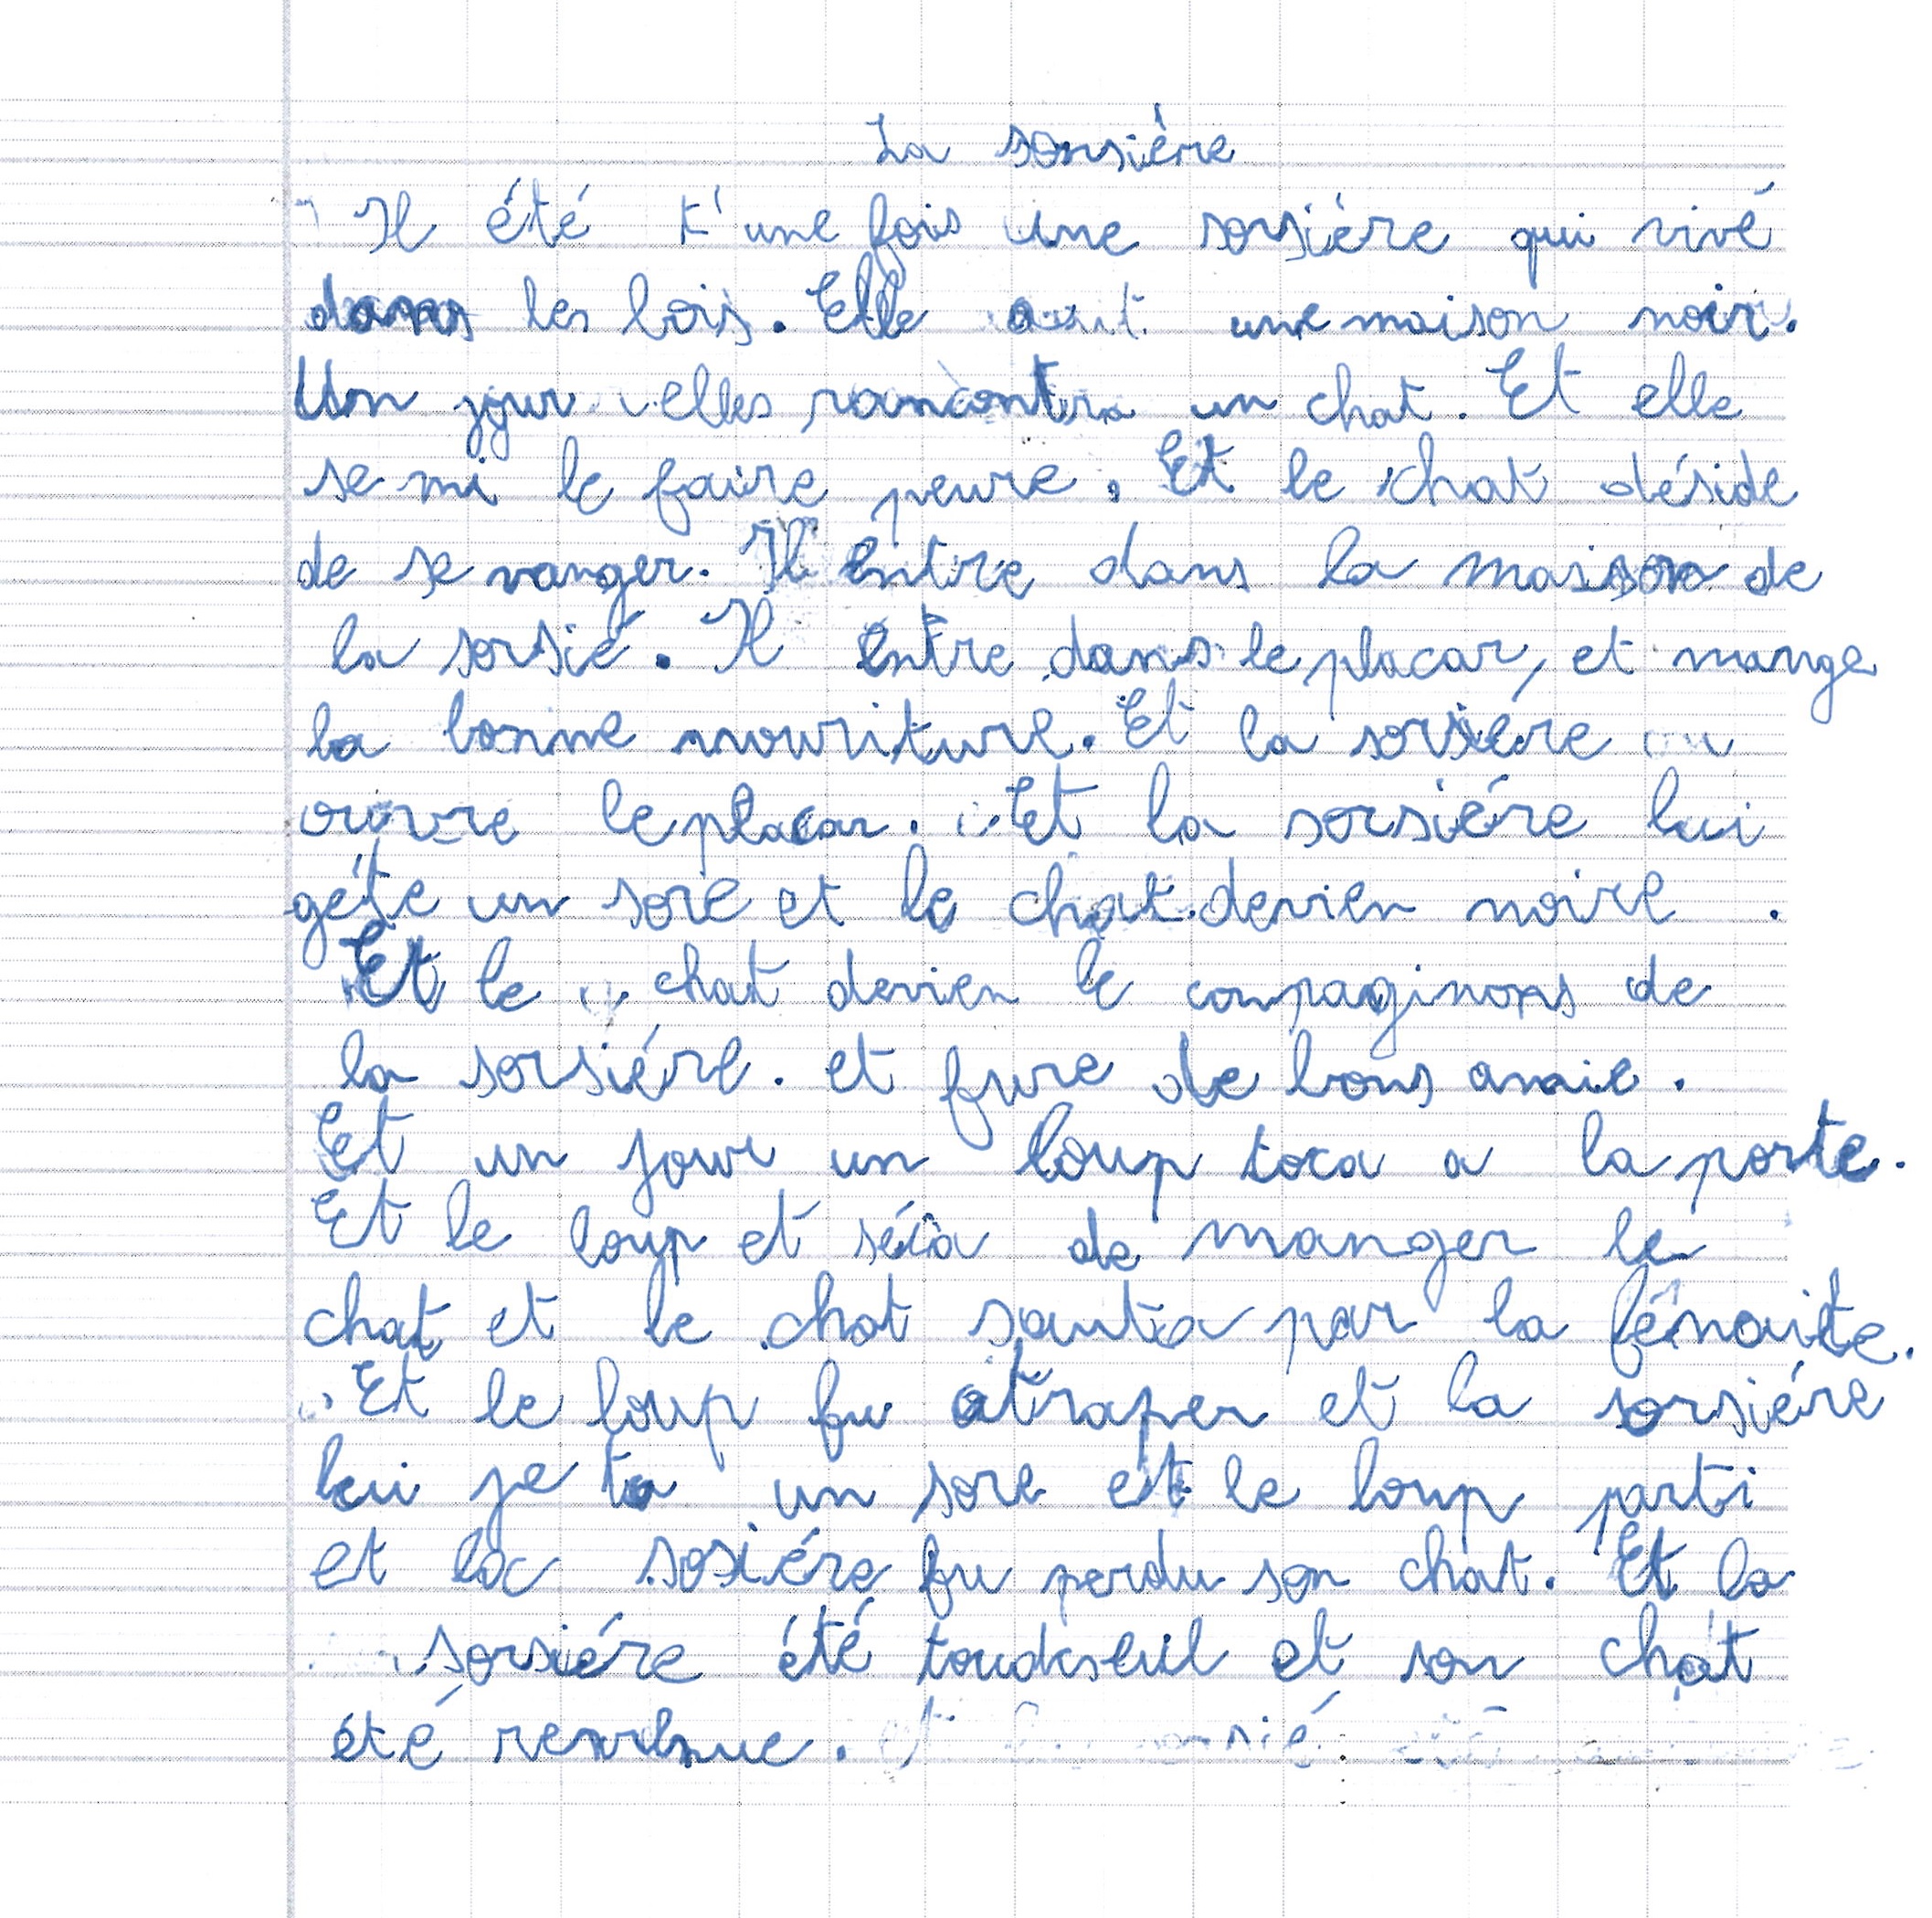 La sorsière
Il été t'une fois une sorsière qui vivé
dans les bois. Elle avait une maison noir.
Un jour elles rancontra un chat. Et elle
se mi le faire peure. Et le chat déside
de se vanger. Il entre dans la maison de
la sorsié. Il entre dans le placar, et mange
la bonne nouriture. Et la sorsière
ouvre le placar. Et la sorsiére lui
géte un sore et le chat devien noire.
Et le chat devien le compaginons de
la sorsiére. et fure de bons amie.
Et un jour un loup toca a la porte.
Et le loup et séia de manger le
chat et le chat santa par la fénaite.
Et le loup fu atraper et la sorsiére
lui je ta un sore et le loup parti
et la sosiére fu perdu son chat. Et la
sorsiére été toudeseul et son chat
été revenue.